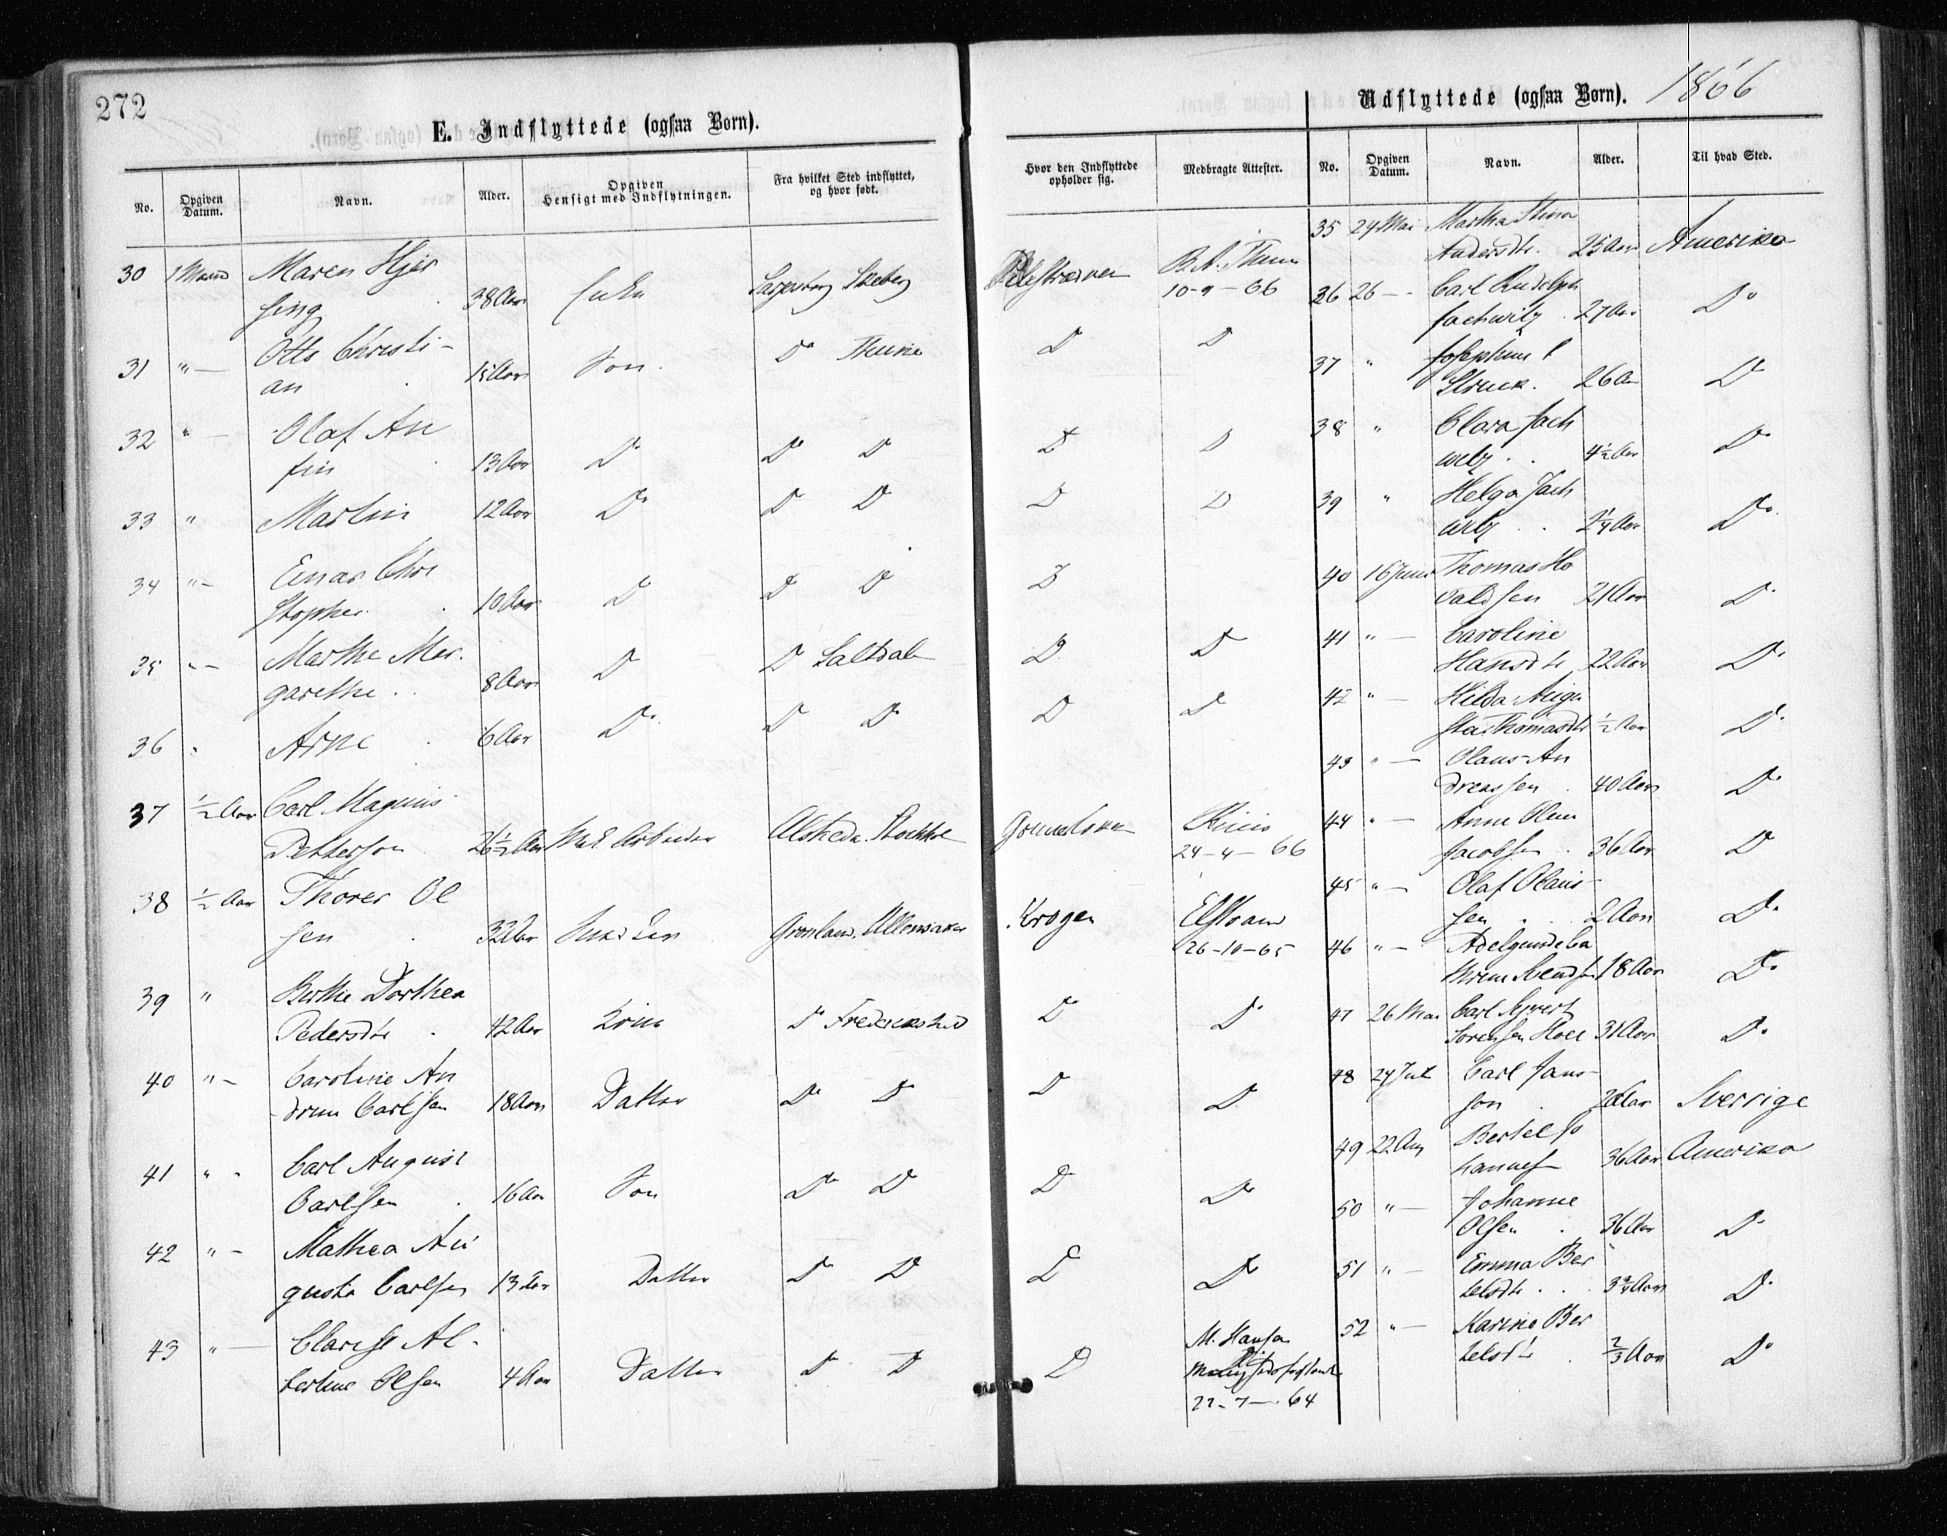 272
E. Indflyttede (ogsaa Børn).
No.
Opgiven Datum.
Navn.
Alder.
Opgiven Hensigt med Indflytningen.
Fra hvilket Sted indflyttet, og hvor født.
Hvor den Indflyttede opholder sig.
Medbragte Attester.
30 Maren 38 Aar Enke Sarpsborg Skeberg
10-9-66
31 "— Otto Christi-
an 15 Aar Søn Do Thune D D
32 "— Olaf An
fin 13 Aar Do Do D D D
33 " Martin 12 Aar Do D D D D
34 "— Einar Chri
stopher 10 Aar D D D D
35 "— Marthe Mar
garethe 8 Aar D D Saltdal D D
36 " Arne 6 Aar Do D Do D D
37 ½ Aar Carl Magnus
Pettersson 26½ Aar Alsheda
24-4-66
38 ½ Aar Thorer Ol
sen 32 Aar Grønland, Ullensaker Krogen
26-10-65
39 " Berthe Dorthea
Pedersdtr 42 Aar Kone Do Frederikshald Do Do
40 "— Caroline An
drine Carlsen 18 Aar Datter Do D D D
41 " " Carl August
Carlsen 16 Aar Søn Do Do D Do
42 "— Mathea Au
gusta Carlsen 13 Aar Datter Do D D Do
43 "— Al-
bertine Olsen 4 Aar Datter D D D
M. Hansen
22-7-64
Udflyttede (ogsaa Børn). 1866
No.
Opgiven Datum.
Navn.
Alder.
Til hvad Sted.
35 24 Mai Martha Stina
Andersdtr. 25 Aar Amerika
36 26 — Carl Rudolph
Jachwitz 27 Aar Do
37 " Josephine
26 Aar D
38 " Clara Jach
witz 4½ Aar Do
39 " Helga Jach
witz 2¼ Aar Do.
40 16 Juni Thomas Ho
valdsen 21 Aar D.
41 "— Caroline
Hansdtr 22 Aar D.
42 "— Hilda Augu
sta Thomasdtr ½ Aar D.
43 "— Olaus An
dreassen 40 Aar Do
44 "— Anne Oline
Jacobsen 36 Aar D
45 "— Olaf Olaus-
sen 2 Aar D.
46 "— Adelgunde Ca
thrine Svendsen 18 Aar D.
47 26 Mai Carl
Sørensen 31 Aar D.
48 24 Juli Carl Jans-
son Sverrige
49 22 Aug Bertel Jo
hannes 36 Aar Amerika
50 "— Johanne
Olsen 36 Aar D.
51 "— Emma Ber
telsdtr. 3¾ Aar D.
52 "— Karine Ber
telsdtr ⅔ Aar Do